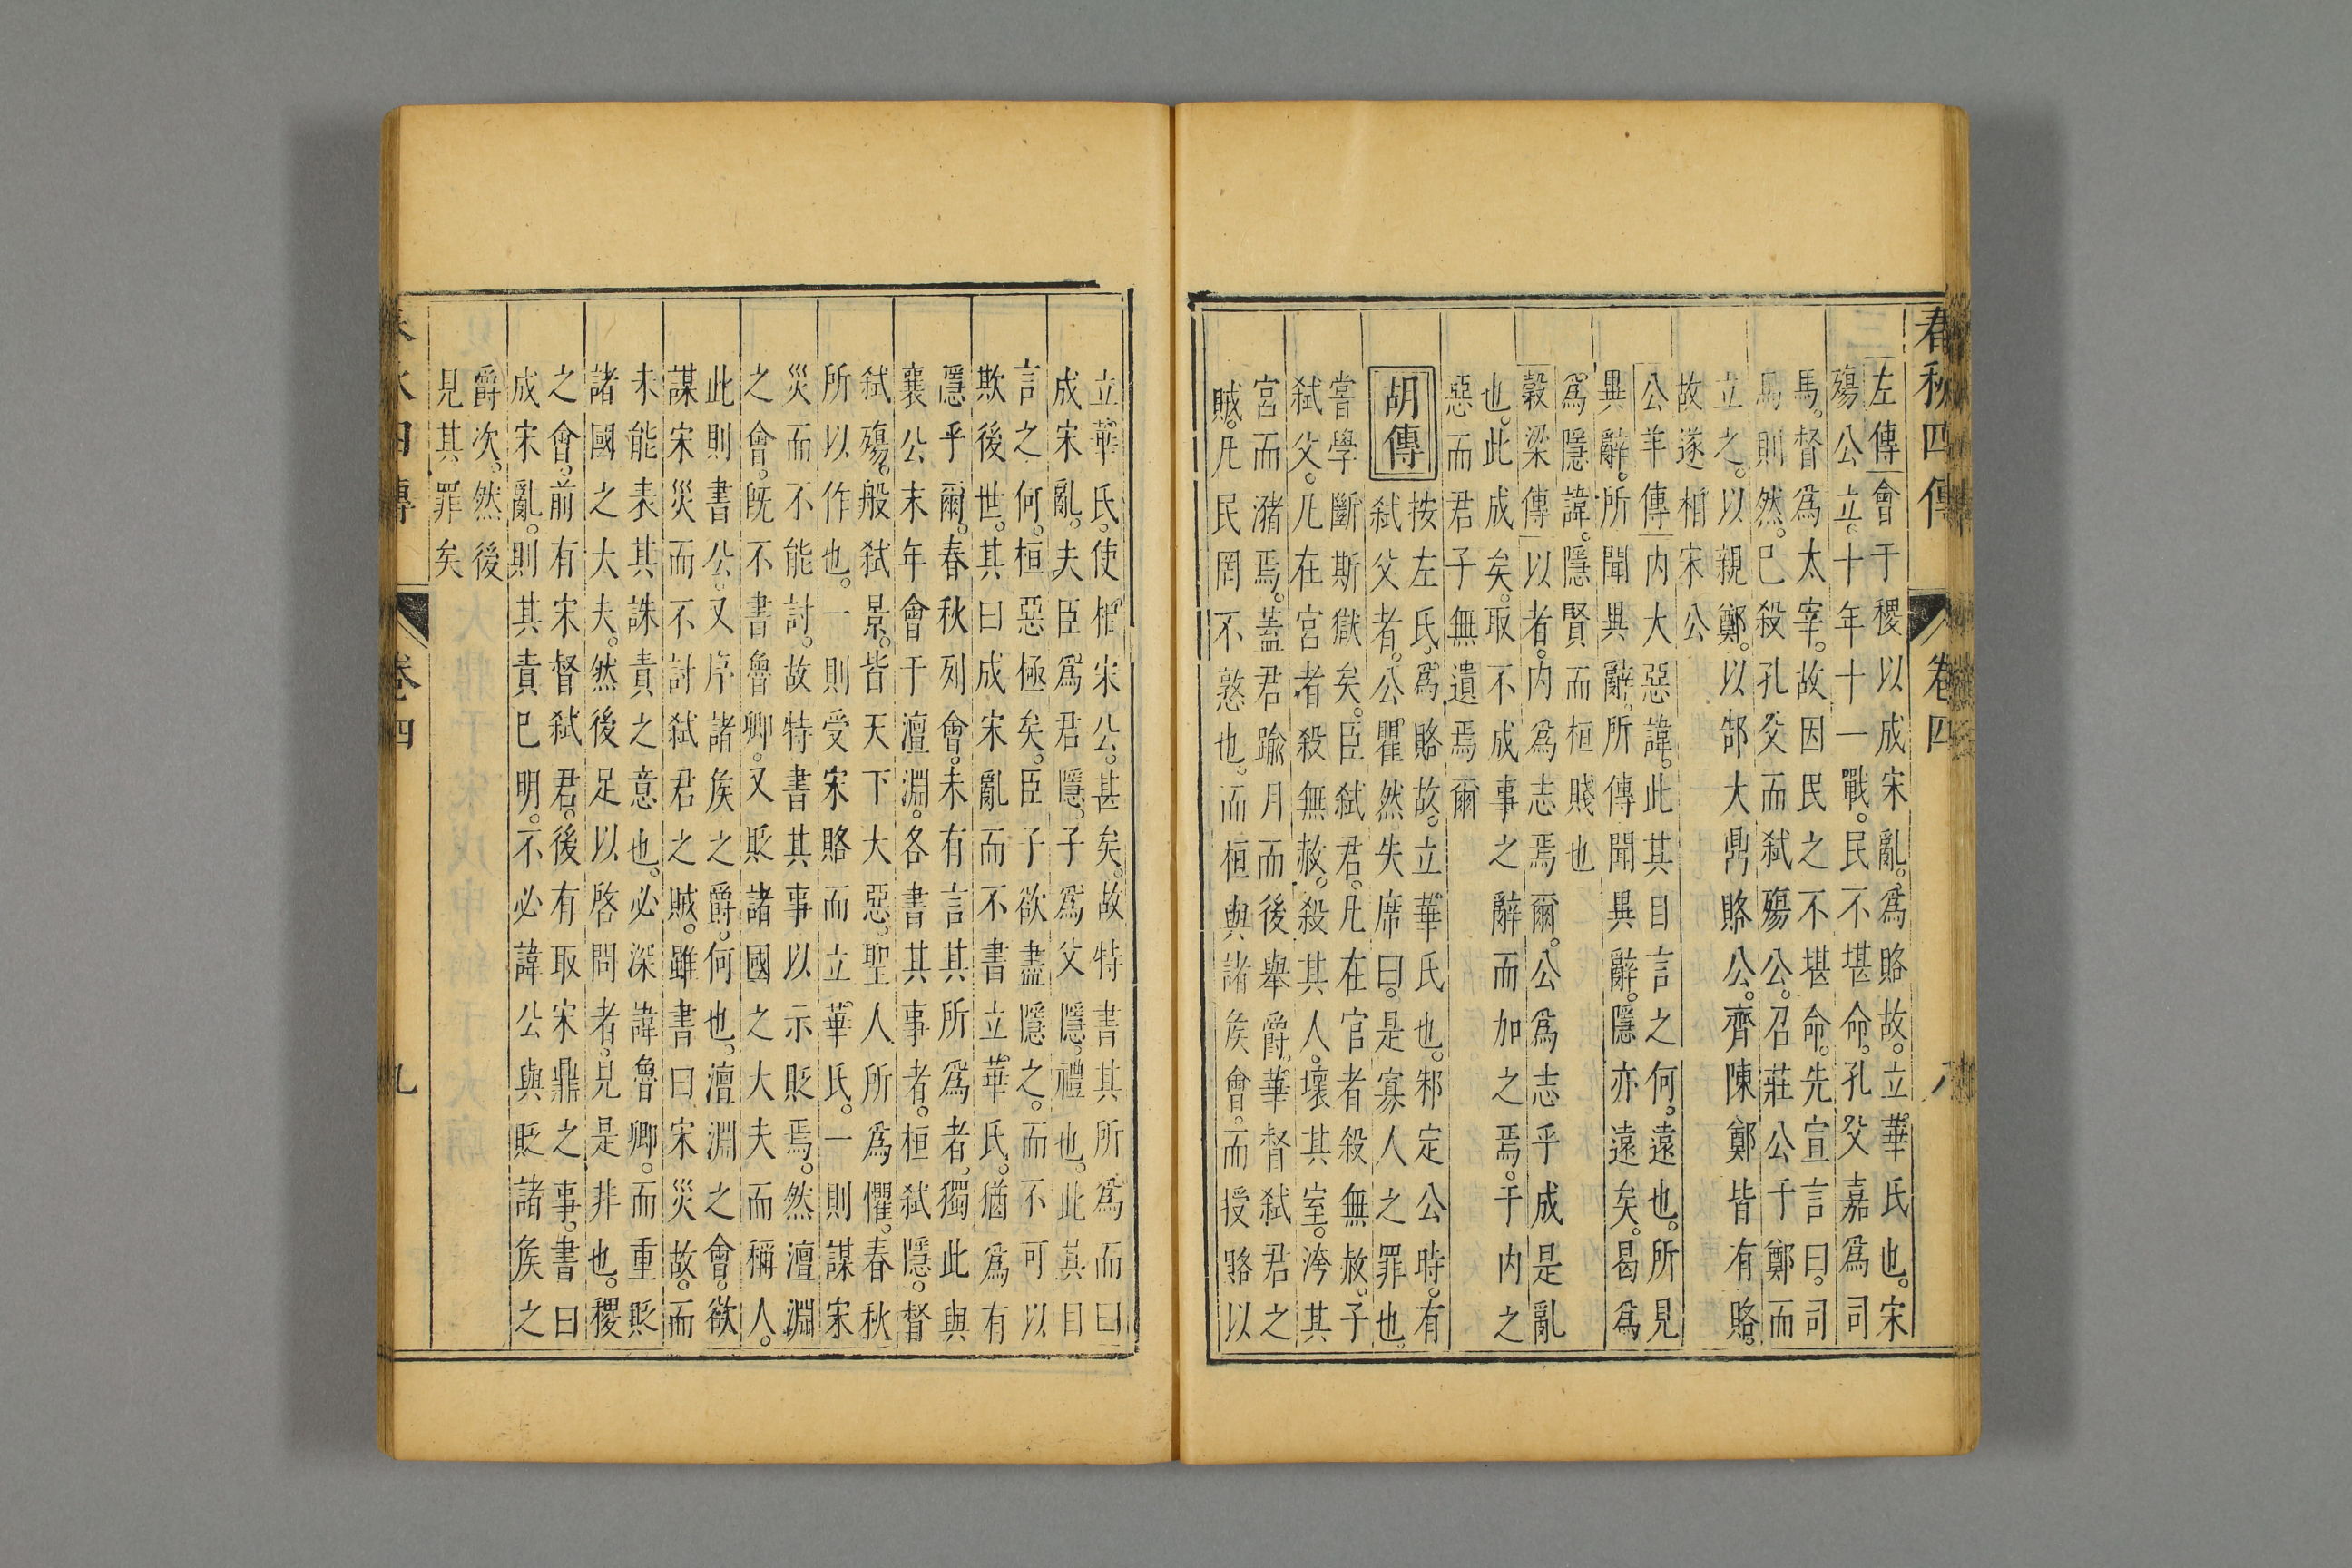 春秋四傳 卷四 八
左傳會于稷以成宋亂。爲賂故。立華氏也。宋
殤公立。十年十一戰。民不堪命。孔父嘉爲司
馬。督爲太宰。故因民之不堪命。先宣言曰。司
馬則然。已殺孔父而弑殤公。召莊公于鄭而
立之。以親鄭。以郜大鼎賂公。齊陳鄭皆有賂。
故遂相宋公
公羊傳內大惡諱。此其目言之何。遠也。所見
異辭。所聞異辭。所傳聞異辭。隱亦遠矣。曷爲
爲隱諱。隱賢而桓賤也
穀梁傳以者。內爲志焉爾。公爲志乎成是亂
也。此成矣。取不成事之辭而加之焉。于內之
惡而君子無遺焉爾
胡傳
按左氏。爲賂故。立華氏也。邾定公時。有
弑父者。公瞿然失席曰。是寡人之罪也。
嘗學斷斯獄矣。臣弑君。凡在官者殺無赦。子
弑父。凡在宮者殺無赦。殺其人。壞其室。洿其
宮而瀦焉。蓋君踰月而後舉爵。華督弑君之
賊。凡民罔不憝也。而桓與諸侯會。而授賂以
立華氏。使相宋公。甚矣。故特書其所爲而曰
成宋亂。夫臣爲君隱。子爲父隱。禮也。此其目
言之何。桓惡極矣。臣子欲盡隱之。而不可以
欺後世。其曰成宋亂而不書立華氏。猶爲有
隱乎爾。春秋列會。未有言其所爲者。獨此與
襄公末年會于澶淵。各書其事者。桓弑隱。督
弑殤。般弑景。皆天下大惡。聖人所爲懼。春秋
所以作也。一則受宋賂而立華氏。一則謀宋
災而不能討。故特書其事以示貶焉。然澶淵
之會。旣不書魯卿。又貶諸國之大夫而稱人。
此則書公。又序諸侯之爵。何也。澶淵之會。欲
謀宋災而不討弑君之賊。雖書曰宋災故。而
未能表其誅責之意也。必深諱魯卿。而重貶
諸國之大夫。然後足以啓問者。見是非也。稷
之會。前有宋督弑君。後有取宋鼎之事。書曰
成宋亂。則其責已明。不必諱公與貶諸侯之
爵次。然後
見其罪矣
四傳 卷四 九